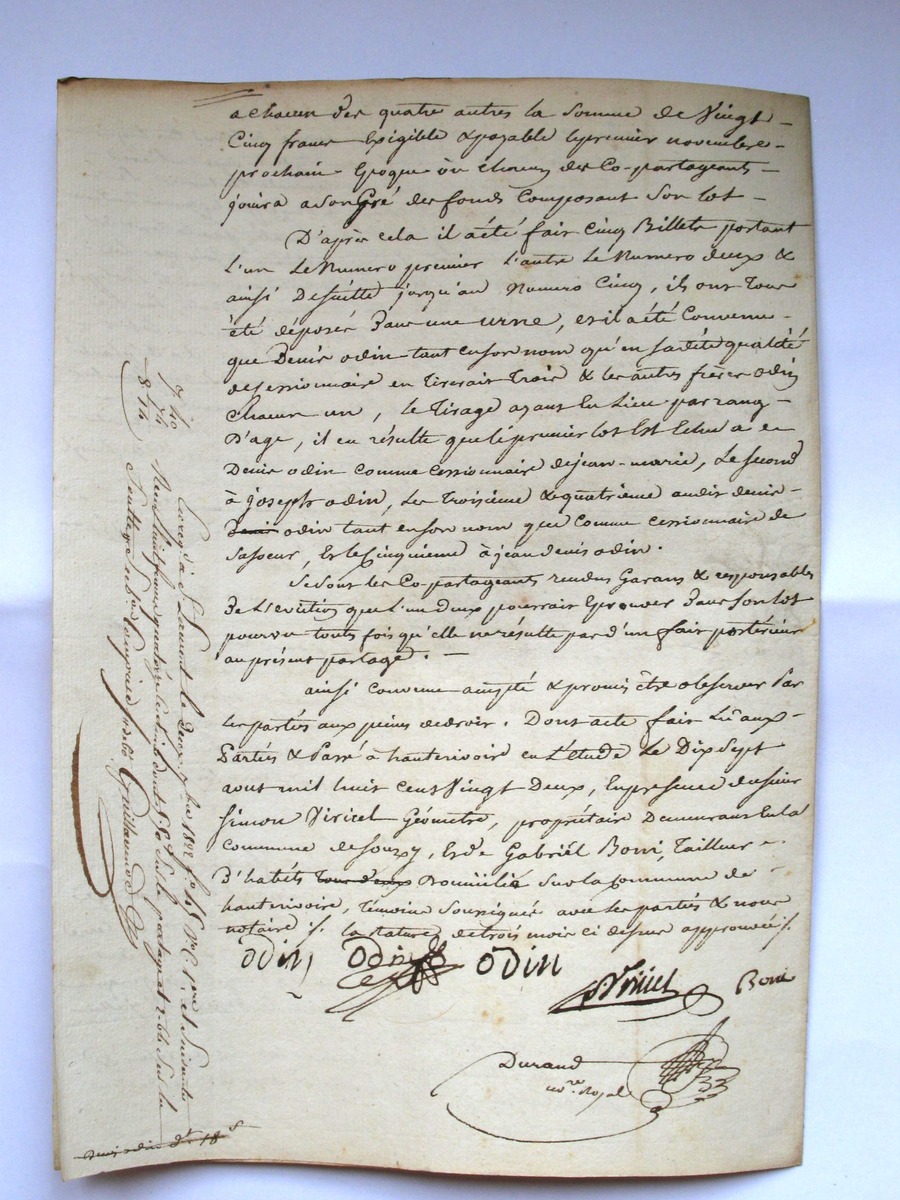 a chacun des quatre autres la somme de Vingt
Cinq francs Exigible & payable le premier novembre
prochain Epoque où chacun des Co-partageants
jouira a son Gré des fonds Composant son lot
D'après cela il a été fait Cinq Billets portant
l'un Le Numero premier l'autre Le Numero deux &
ainsi De suitte jusqu'au Numero Cinq, ils ont tous
été déposés Dans une urne, et il a été Convenu
que Denis odin tant en son nom qu'en sa dite qualité
de cessionnaire en tirerait Trois & les autres frères odin
Chacun un, le tirage ayant Eu Lieu par rang
D'age, il en résulte que le premier lot Est Echu a
Denis odin comme cessionnaire de jean-marie, Le second
à joseph odin, Les Troisieme & quatrieme audit denis
Denis odin tant en son nom que comme cessionnaire de
sa soeur, Et le Cinquieme à jean denis odin.
Se sont les Co-partageants rendus Garans & responsables
De L'eviction que L'un Deux pourrait Eprouver Dans son lot
pourvu toute fois qu'elle ne résulte pas d'un fait postérieur
au présent partage. —
ainsi Convenu accepté & promis être observer Par
les parties aux peines de droit. Dont acte fait Lû aux
Parties & Passé à hauterivoire en L'étude Le Dix Sept
aout mil huit Cent Vingt Deux, En presence du sieur
Simon Viricel Géometre, propriétaire Demeurant En la
Commune de Souzy, Et de Gabriël Boni, Tailleur
D'habits tous deux Domicilié sur la Commune de
hauterivoire, Témoins soussignés avec les parties & nous
notaire ./. la rature de trois mots ci dessus approuvée ./.
Odin Odin Odin
Viricel Boni
Durand
no.re Royal
Enreg. à St Laurent le Deux 7bre 1822 fo 45 Vo C. 1ere et suivantes